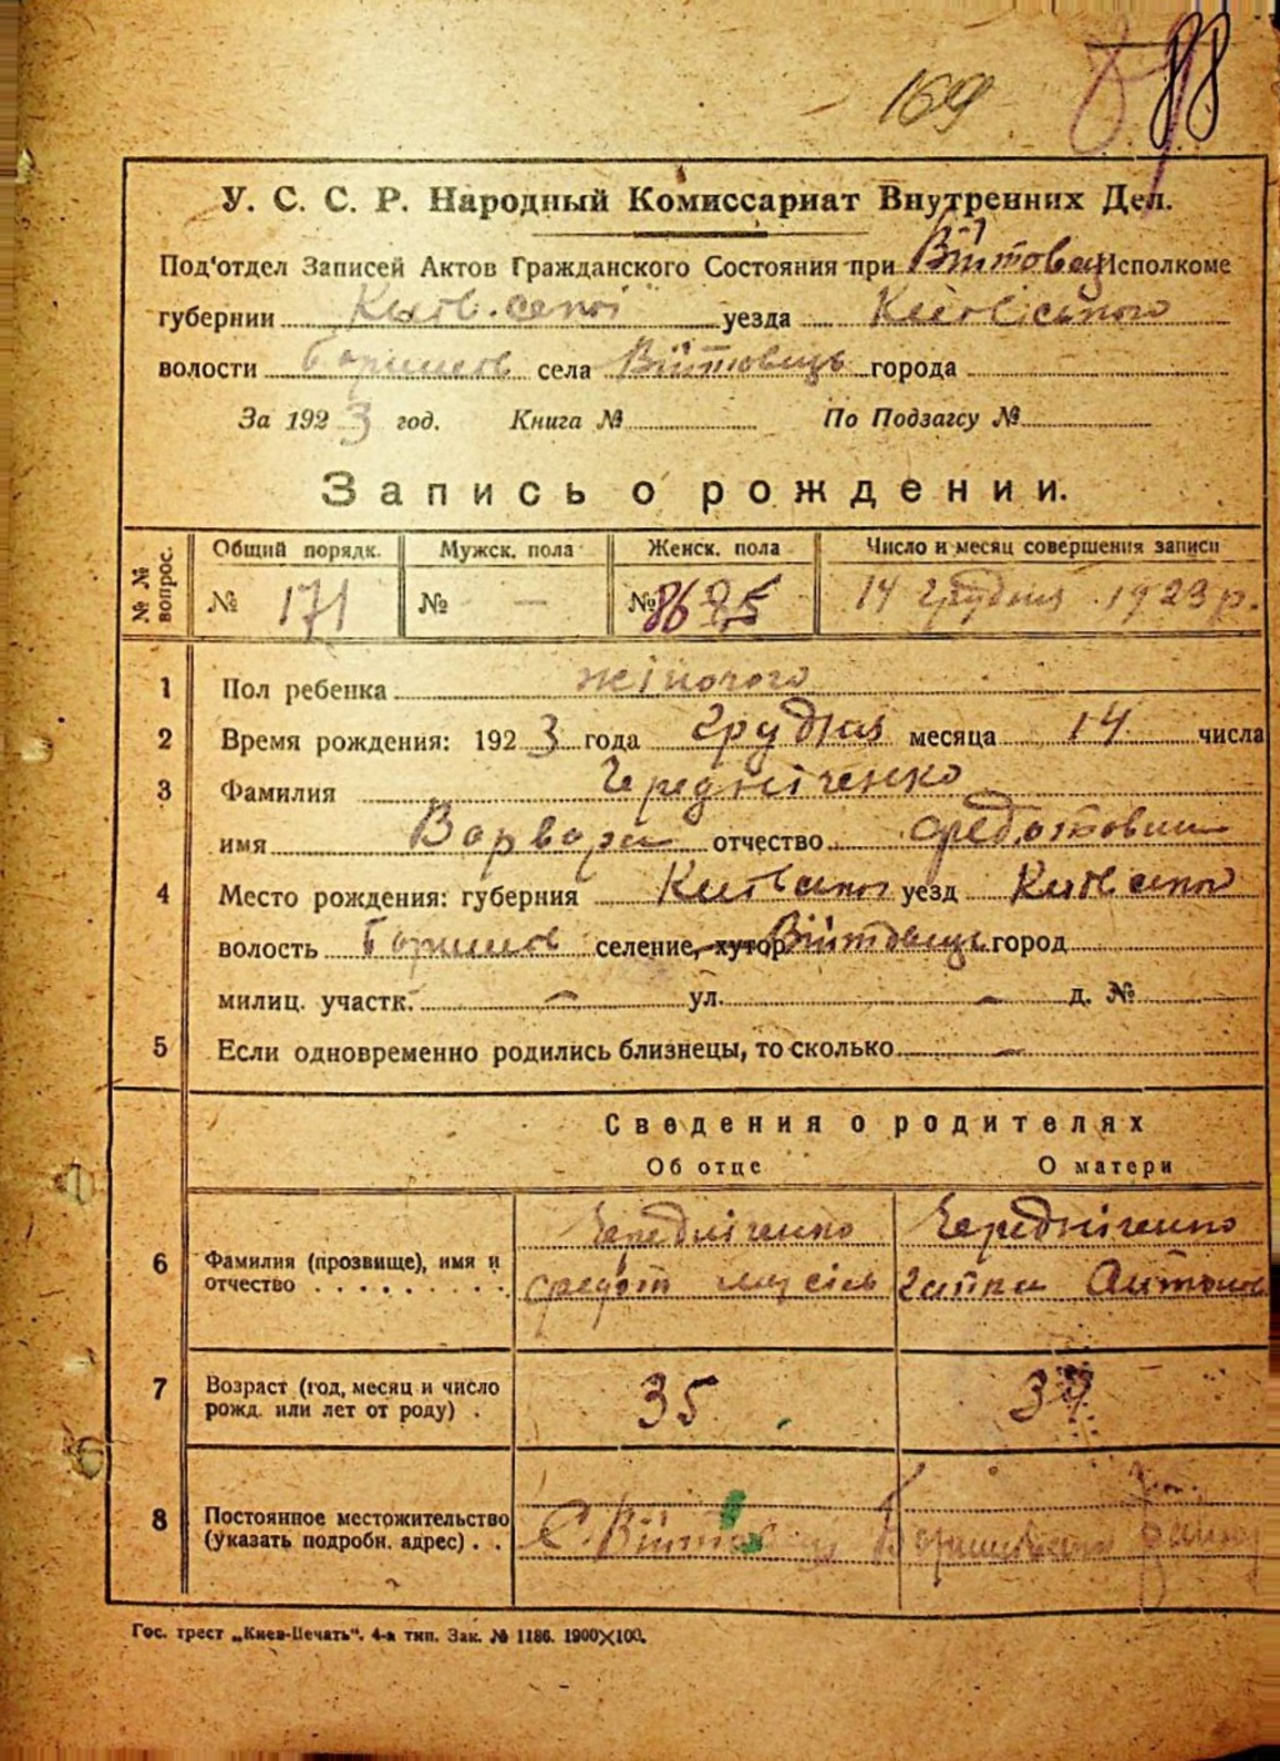 169 88
У. С. С. Р. Народный Комиссариат Внутренних Дел.
Под'отдел Записей Актов Гражданского Состояния при Війтовец Исполкоме
губернии уезда Київського
волости села Війтовець города
За 1923 год. Книга № По Подзагсу №
Запись о рождении.
№ № вопрос. Общий порядк. Мужск. пола Женск. пола Число и месяц совершения записи
№ 171 № — № 86 14 Грудня 1923 р.
1 Пол ребенка жіночого
2 Время рождения: 1923 года Грудня месяца 14 числа
3 Фамилия Чередніченко
имя Варвара отчество Федотовна
4 Место рождения: губерния уезд
волость селение, хутор Війтовець город
милиц. участк. — ул. — д. №
5 Если одновременно родились близнецы, то сколько —
Сведения о родителях
Об отце О матери
Чередніченко Чередніченко
6 Фамилия (прозвище), имя и
отчество . . . . . . . . . Федот
7 Возраст (год, месяц и число
рожд. или лет от роду) . 35
8 Постоянное местожительство
(указать подробн. адрес) . . С.
Гос. трест „Киев-Печать“. 4-я тип. Зак. № 1186. 1900×100.